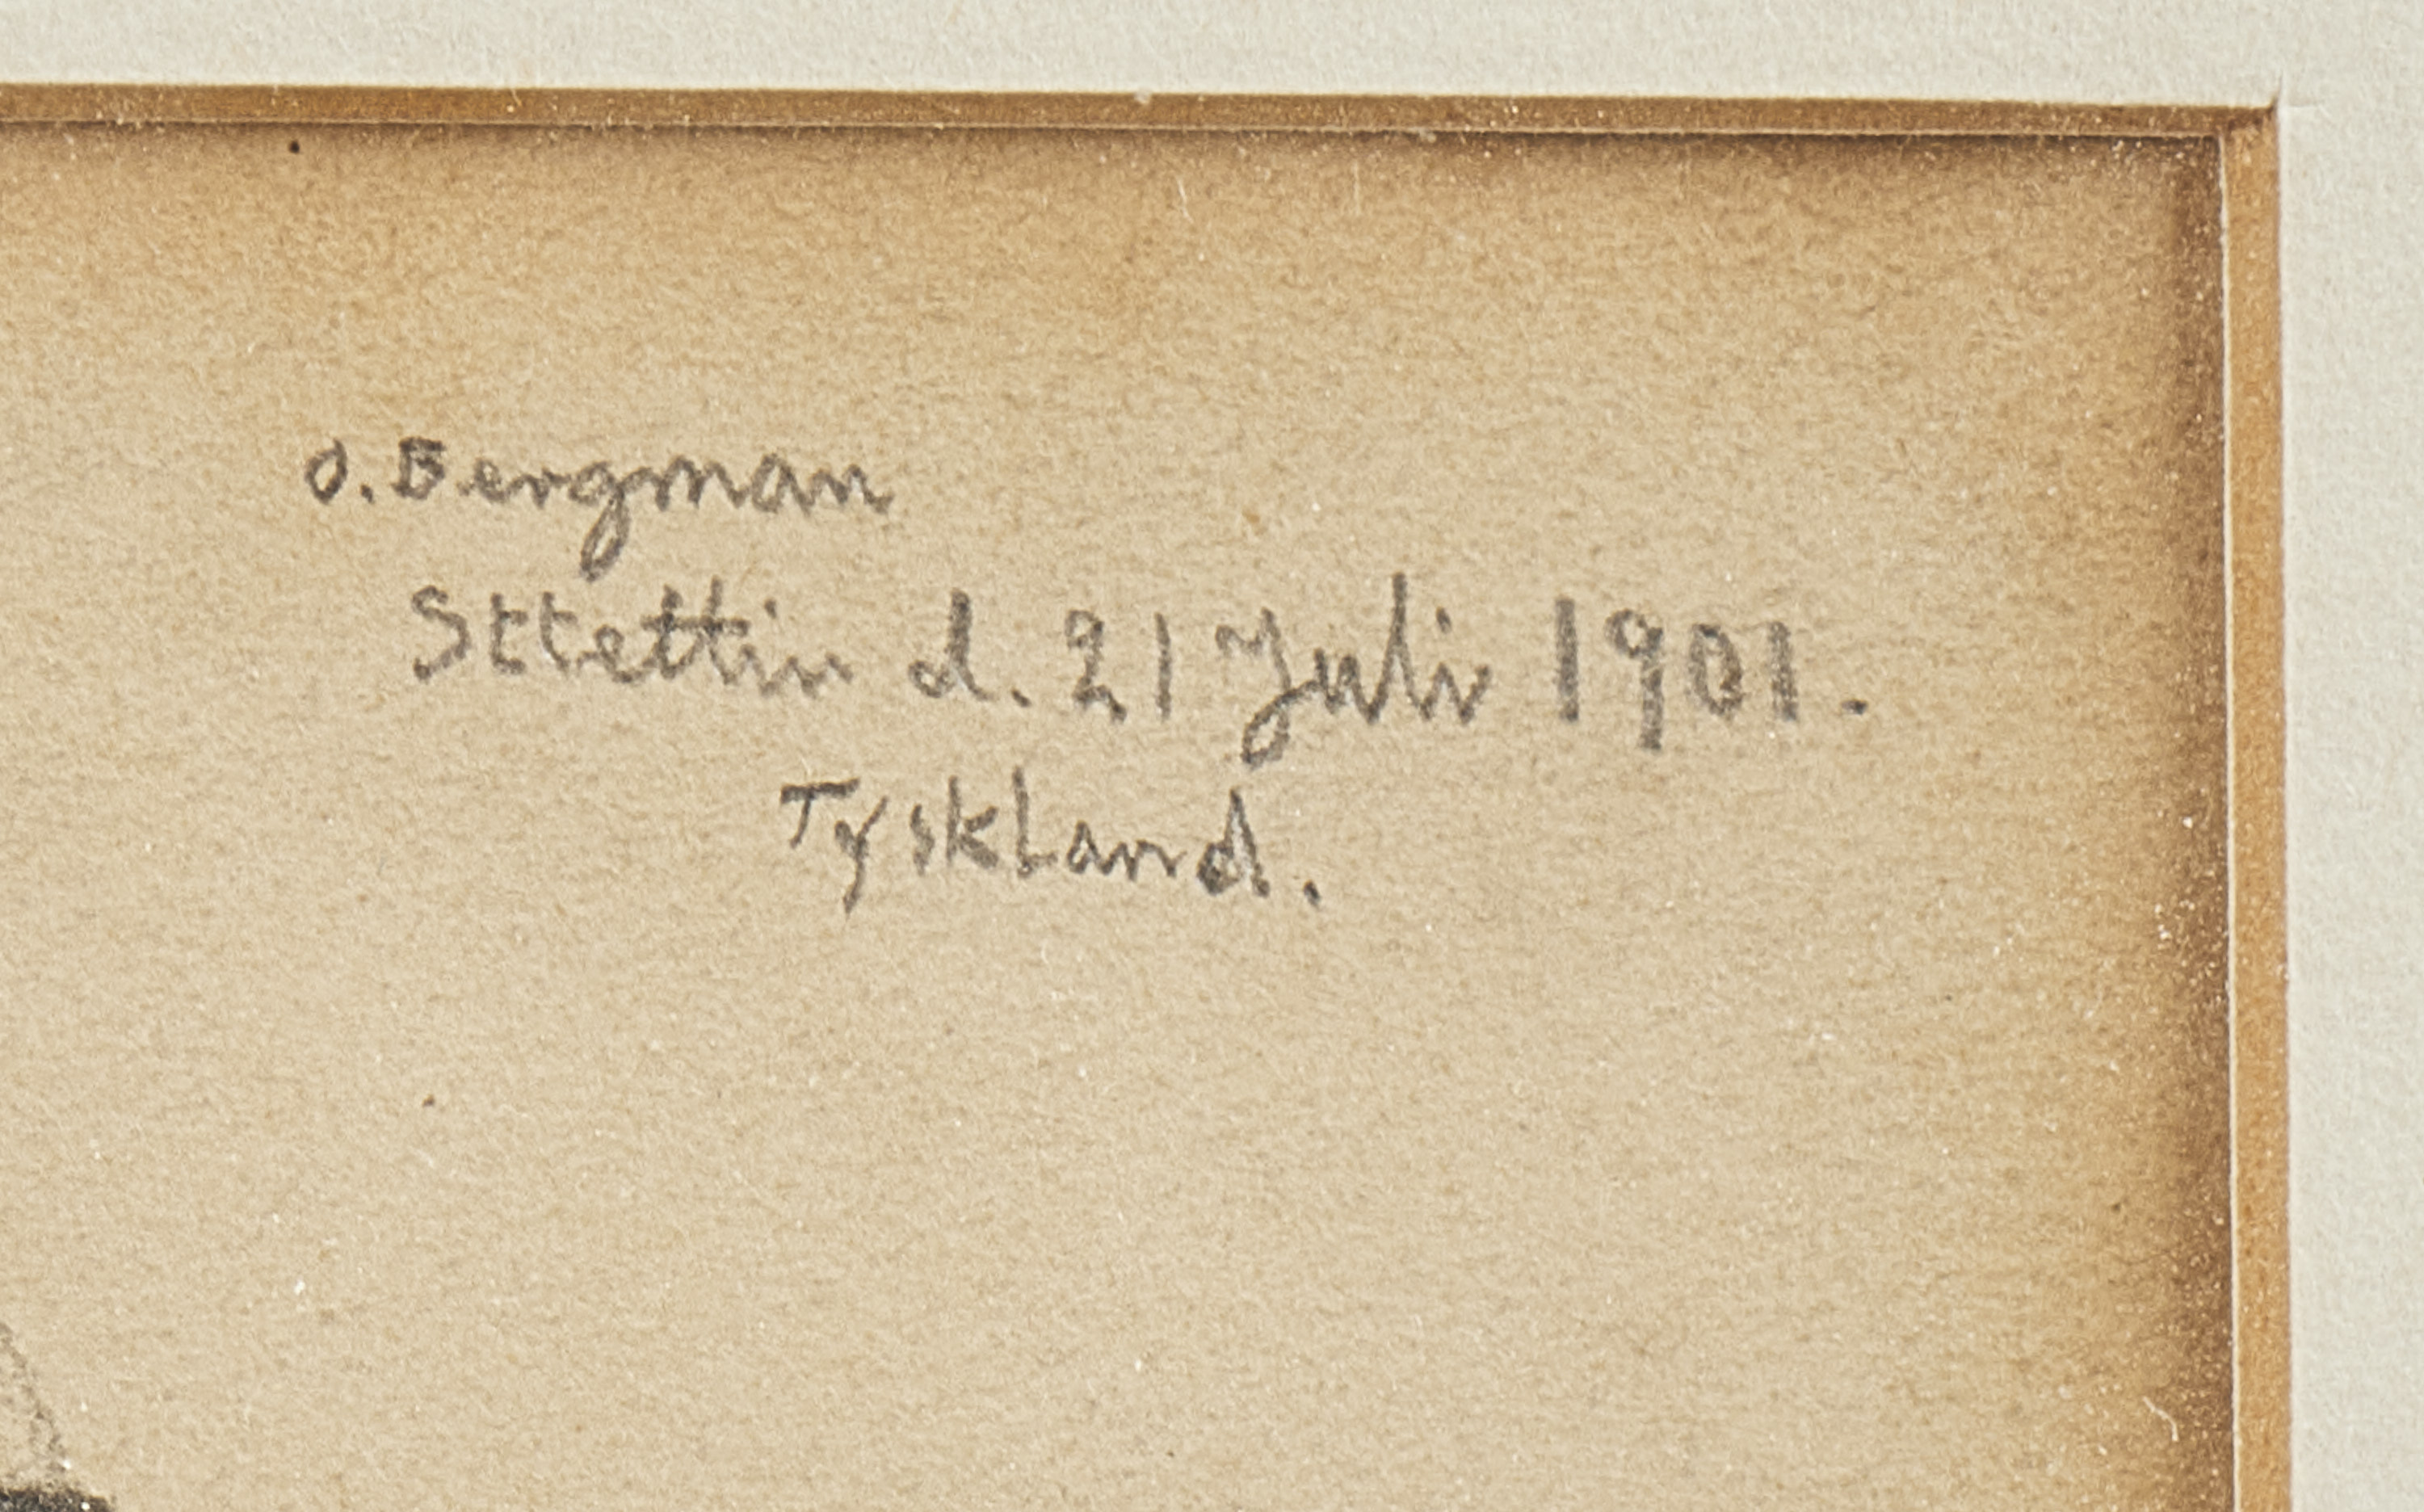 O. Bergman
Sttettin d. 21 Juli 1901.
Tyskland.